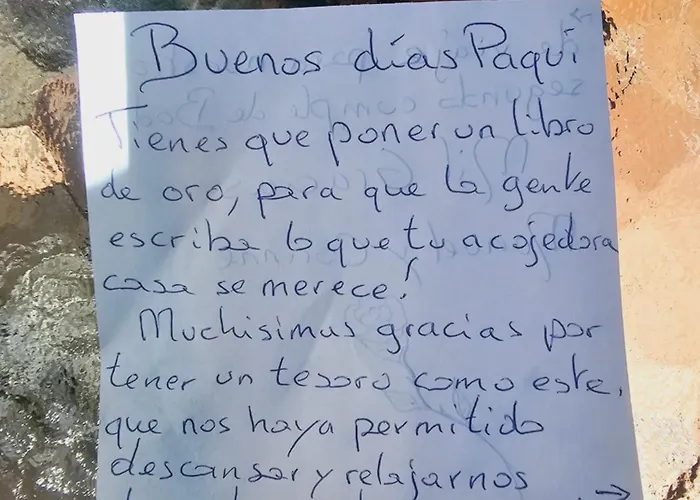 Buenos días Paqui
Tienes que poner un libro
de oro, para que la gente
escriba lo que tu acojedora
casa se merece!
Muchisimas gracias por
tener un tesoro como este,
que nos haya permitido
descansar y relajarnos